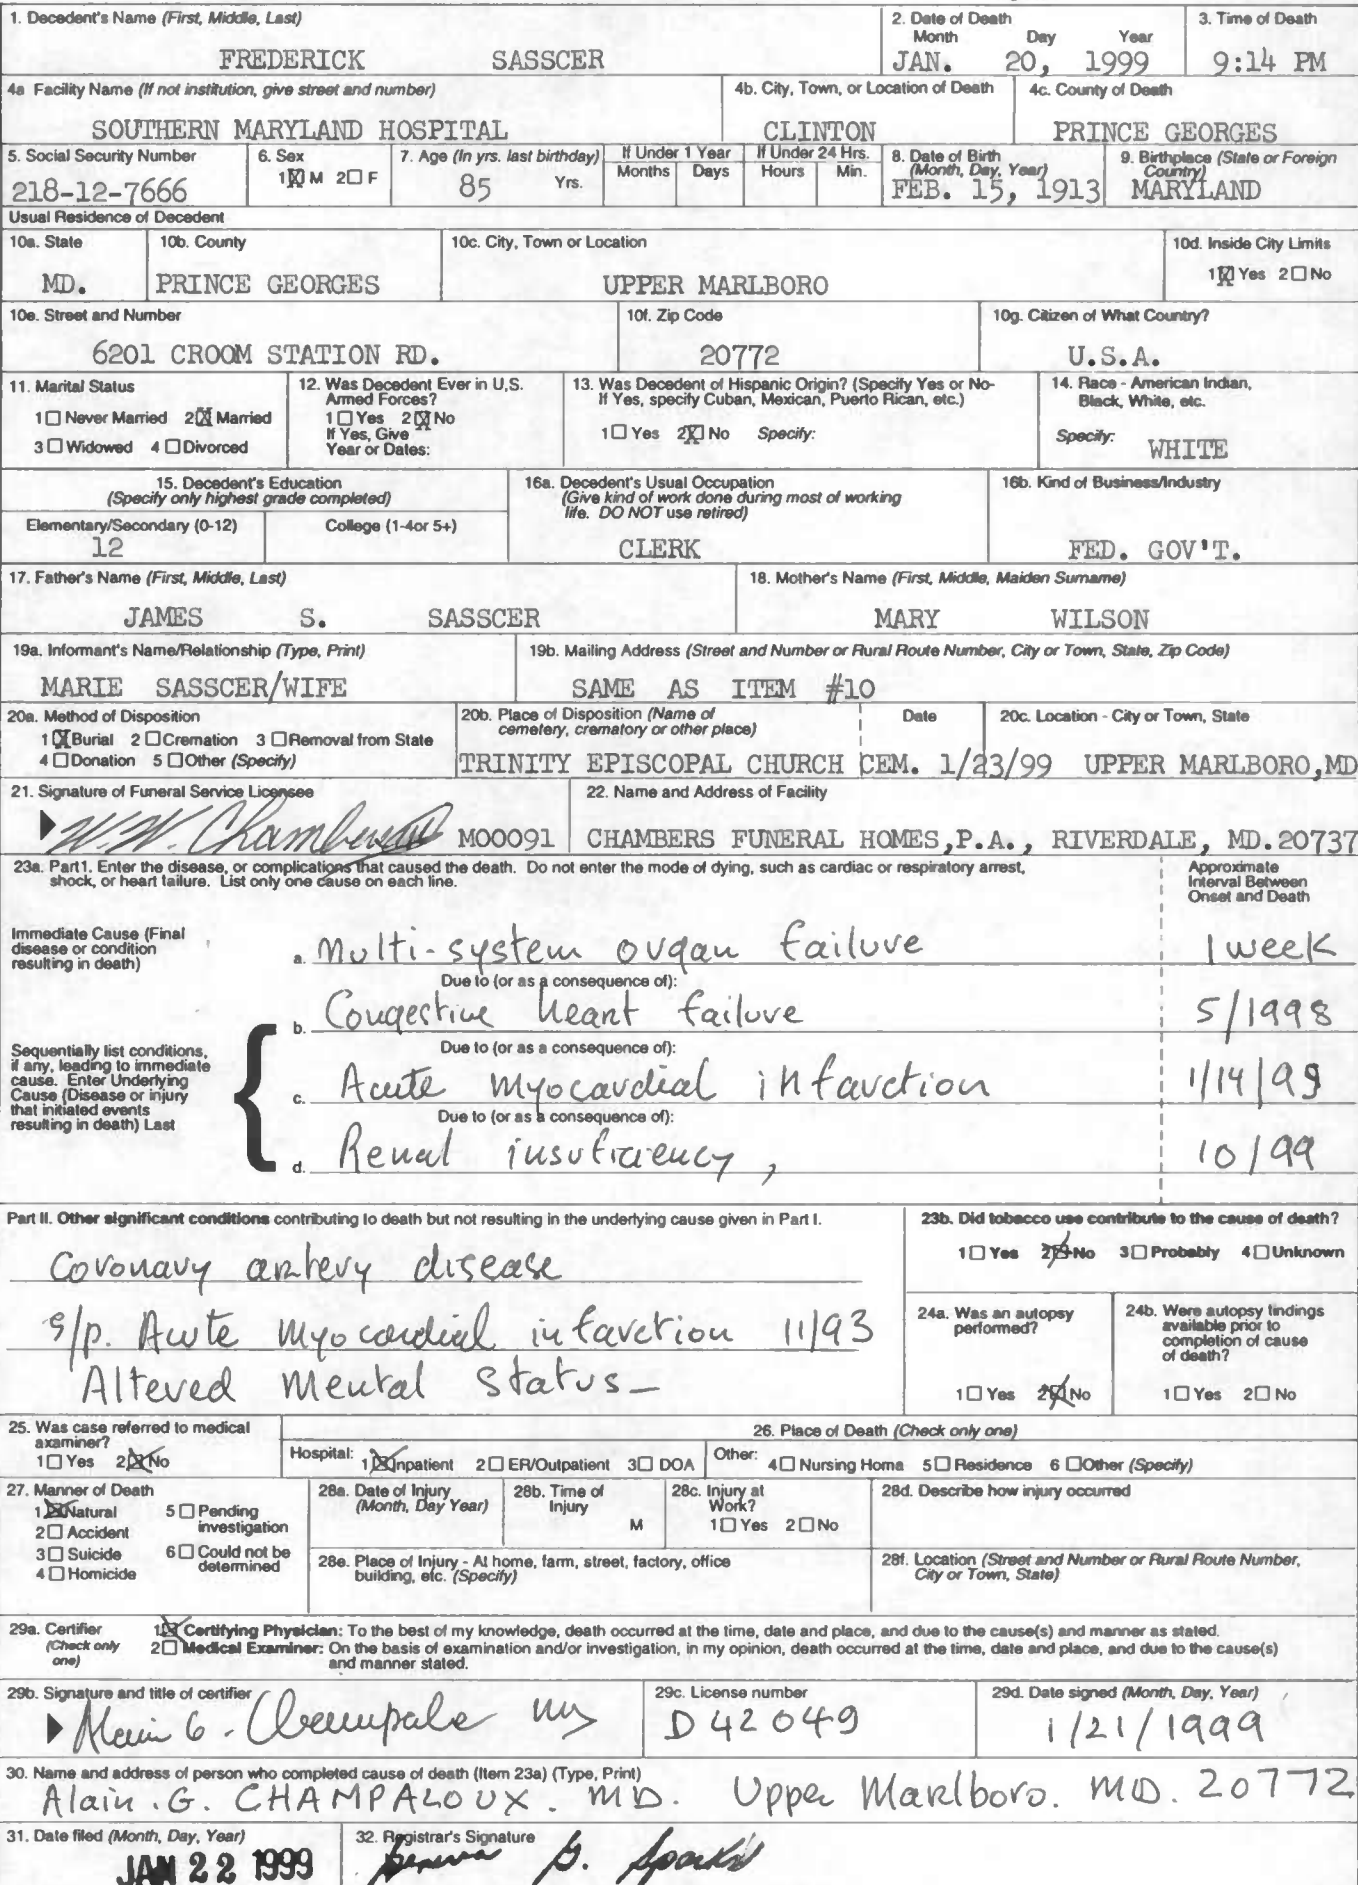 1. Decedent's Name (First, Middle, Last)
FREDERICK SASSCER
2. Date of Death
Month Day Year
JAN. 20, 1999
3. Time of Death
9:14 PM
4a Facility Name (If not institution, give street and number)
SOUTHERN MARYLAND HOSPITAL
4b. City, Town, or Location of Death
CLINTON
4c. County of Death
PRINCE GEORGES
5. Social Security Number
218-12-7666
6. Sex
1☒ M 2☐ F
7. Age (In yrs. last birthday)
85 Yrs.
If Under 1 Year
Months Days
If Under 24 Hrs.
Hours Min.
8. Date of Birth
(Month, Day, Year)
FEB. 15, 1913
9. Birthplace (State or Foreign
Country)
MARYLAND
Usual Residence of Decedent
10a. State
MD.
10b. County
PRINCE GEORGES
10c. City, Town or Location
UPPER MARLBORO
10d. Inside City Limits
1☒ Yes 2☐ No
10e. Street and Number
6201 CROOM STATION RD.
10f. Zip Code
20772
10g. Citizen of What Country?
U.S.A.
11. Marital Status
1☐ Never Married 2☒ Married
3☐ Widowed 4☐ Divorced
12. Was Decedent Ever in U,S.
Armed Forces?
1☐ Yes 2☒ No
If Yes, Give
Year or Dates:
13. Was Decedent of Hispanic Origin? (Specify Yes or No-
If Yes, specify Cuban, Mexican, Puerto Rican, etc.)
1☐ Yes 2☒ No Specify:
14. Race - American Indian,
Black, White, etc.
Specify: WHITE
15. Decedent's Education
(Specify only highest grade completed)
Elementary/Secondary (0-12) College (1-4or 5+)
12
16a. Decedent's Usual Occupation
(Give kind of work done during most of working
life. DO NOT use retired)
CLERK
16b. Kind of Business/Industry
FED. GOV'T.
17. Father's Name (First, Middle, Last)
JAMES S. SASSCER
18. Mother's Name (First, Middle, Maiden Surname)
MARY WILSON
19a. Informant's Name/Relationship (Type, Print)
MARIE SASSCER/WIFE
19b. Mailing Address (Street and Number or Rural Route Number, City or Town, State, Zip Code)
SAME AS ITEM #10
20a. Method of Disposition
1☒ Burial 2☐ Cremation 3☐ Removal from State
4☐ Donation 5☐ Other (Specify)
20b. Place of Disposition (Name of
cemetery, crematory or other place)
TRINITY EPISCOPAL CHURCH CEM.
Date
1/23/99
20c. Location - City or Town, State
UPPER MARLBORO,MD
21. Signature of Funeral Service Licensee
W.W. Chambers M00091
22. Name and Address of Facility
CHAMBERS FUNERAL HOMES,P.A., RIVERDALE, MD.20737
23a. Part1. Enter the disease, or complications that caused the death. Do not enter the mode of dying, such as cardiac or respiratory arrest,
shock, or heart failure. List only one cause on each line.
Approximate
Interval Between
Onset and Death
Immediate Cause (Final
disease or condition
resulting in death)
a. Multi-system organ failure 1 week
Due to (or as a consequence of):
b. Congestive heart failure 5/1998
Sequentially list conditions,
if any, leading to immediate
cause. Enter Underlying
Cause (Disease or injury
that initiated events
resulting in death) Last
Due to (or as a consequence of):
c. Acute myocardial infarction 1/14/99
Due to (or as a consequence of):
d. Renal insuficiency, 10/99
Part II. Other significant conditions contributing to death but not resulting in the underlying cause given in Part I.
Coronary artery disease
s/p. Acute myocardial infarction 11/93
Altered mental status-
23b. Did tobacco use contribute to the cause of death?
1☐ Yes 2☒ No 3☐ Probably 4☐ Unknown
24a. Was an autopsy
performed?
1☐ Yes 2☒ No
24b. Were autopsy findings
available prior to
completion of cause
of death?
1☐ Yes 2☐ No
25. Was case referred to medical
examiner?
1☐ Yes 2☒ No
26. Place of Death (Check only one)
Hospital: 1☒ Inpatient 2☐ ER/Outpatient 3☐ DOA Other: 4☐ Nursing Home 5☐ Residence 6☐ Other (Specify)
27. Manner of Death
1☒ Natural 5☐ Pending
investigation
2☐ Accident
3☐ Suicide 6☐ Could not be
determined
4☐ Homicide
28a. Date of Injury
(Month, Day Year)
28b. Time of
Injury
M
28c. Injury at
Work?
1☐ Yes 2☐ No
28d. Describe how injury occurred
28e. Place of Injury - At home, farm, street, factory, office
building, etc. (Specify)
28f. Location (Street and Number or Rural Route Number,
City or Town, State)
29a. Certifier
(Check only
one)
1☒ Certifying Physician: To the best of my knowledge, death occurred at the time, date and place, and due to the cause(s) and manner as stated.
2☐ Medical Examiner: On the basis of examination and/or investigation, in my opinion, death occurred at the time, date and place, and due to the cause(s)
and manner stated.
29b. Signature and title of certifier
29c. License number
D42049
29d. Date signed (Month, Day, Year)
1/21/1999
30. Name and address of person who completed cause of death (Item 23a) (Type, Print)
Alain. G. CHAMPALOUX. MD. Upper Marlboro. MD. 20772
31. Date filed (Month, Day, Year)
JAN 22 1999
32. Registrar's Signature